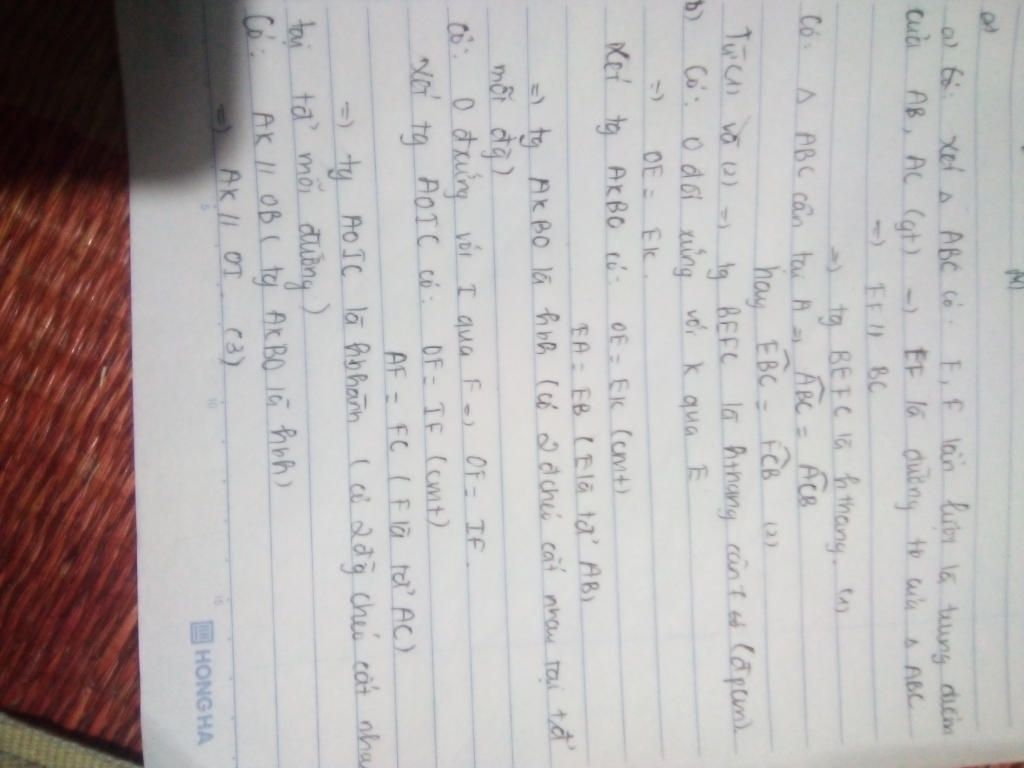 a)
a) Có: Xét Δ ABC có: E, F lần lượt là trung điểm
của AB, AC (gt) => EF là đường tb của Δ ABC
=> EF // BC
=> tg BEFC là hthang. (1)
Có: Δ ABC cân tại A => ABC = ACB
hay EBC = FCB (2)
Từ (1) và (2) => tg BEFC là hthang cân (đpcm)
b) Có: O đối xứng với K qua E
=> OE = EK.
Xét tg AKBO có: OE = EK (cmt)
EA = EB (E là tđ' AB)
=> tg AKBO là hbh (có 2 đchéo cắt nhau tại tđ'
mỗi đg)
Có: O đxứng với I qua F => OF = IF.
Xét tg AOIC có: OF = IF (cmt)
AF = FC (F là tđ' AC)
=> tg AOIC là hbhành (có 2 đg chéo cắt nhau
tại tđ' mỗi đường)
Có: AK // OB (tg AKBO là hbh)
=> AK // OI (3)
5 10 15
HONG HA